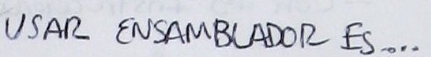 USAR ENSAMBLADOR ES....